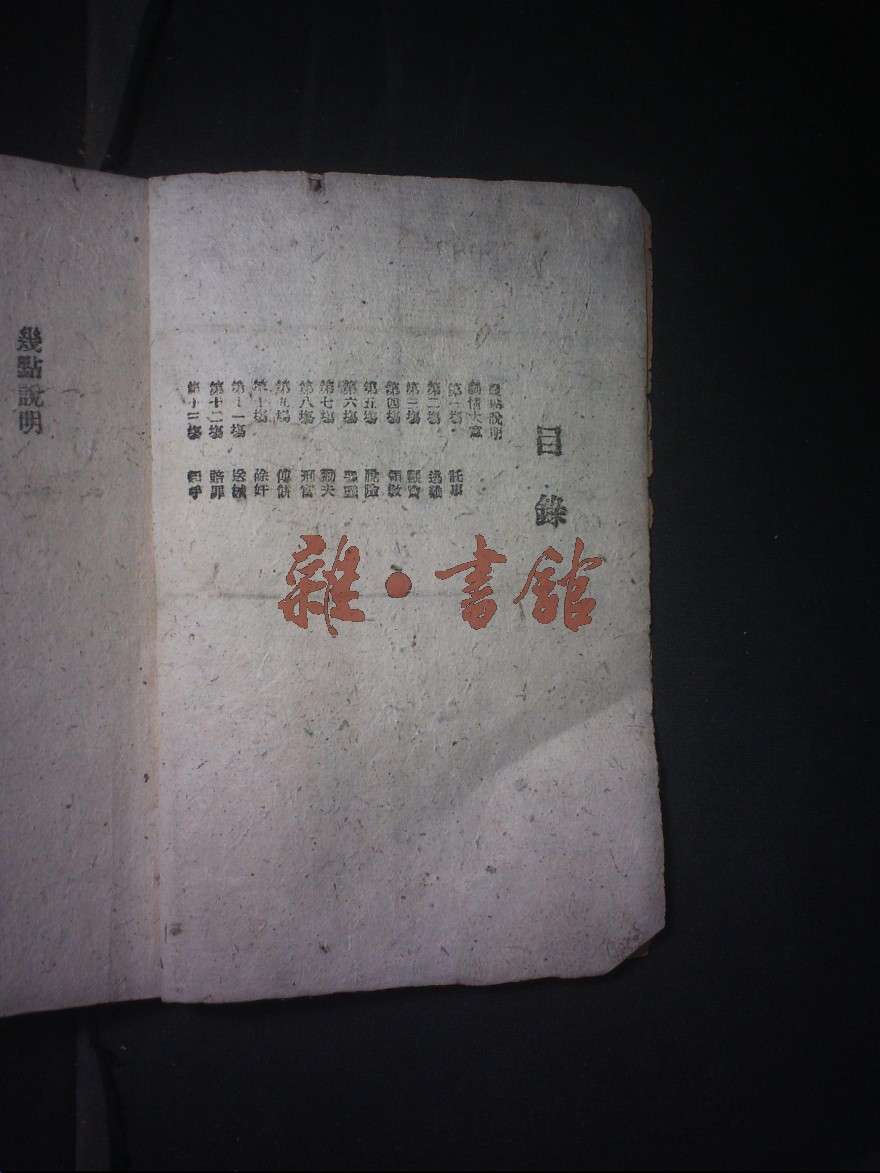 目錄
幾點說明
劇情大意
第一場 託事
第二場 逃難
第三場
第四場 領教
第五場 脫險
第六場
第七場 勸夫
第八場 刑官
第九場
第十場 除奸
第十一場 送
第十二場 賠罪
第十三場
幾點說明
雜·書館